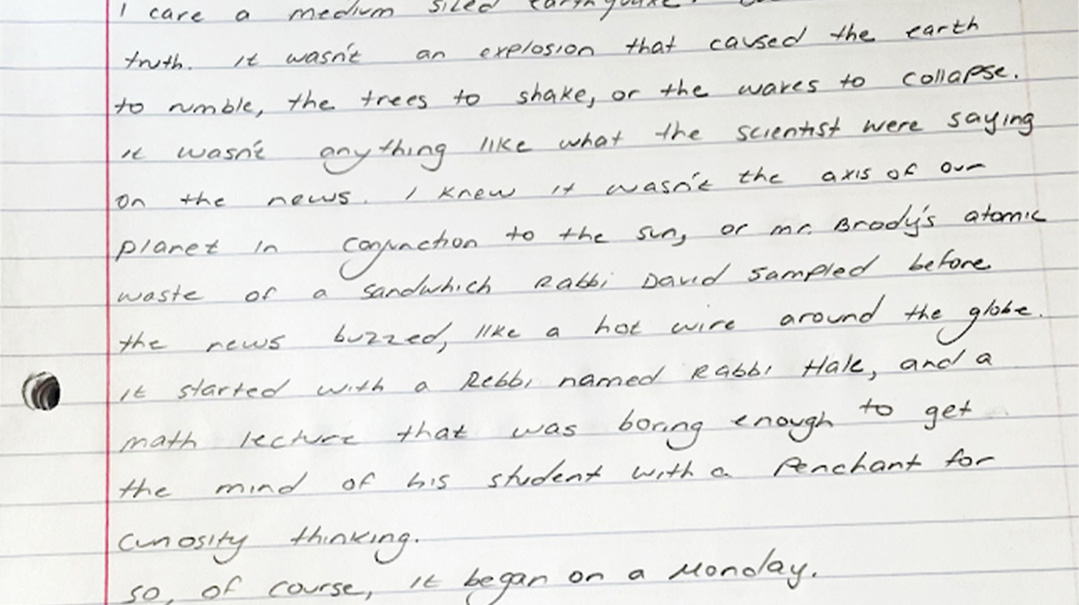 I care a medium sized earthquake.
truth. It wasn't an explosion that caused the earth
to rumble, the trees to shake, or the waves to collapse.
it wasn't anything like what the scientist were saying
on the news. I knew it wasn't the axis of our
planet in conjunction to the sun, or mr. Brody's atomic
waste of a sandwhich Rabbi David sampled before
the news buzzed, like a hot wire around the globe.
it started with a Rebbi named Rabbi Hale, and a
math lecture that was boring enough to get
the mind of his student with a Penchant for
curiosity thinking.
so, of course, it began on a Monday.